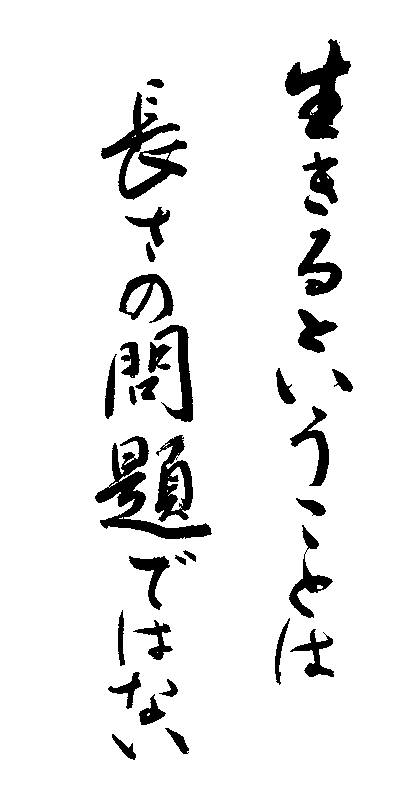 生きるということは
長さの問題ではない